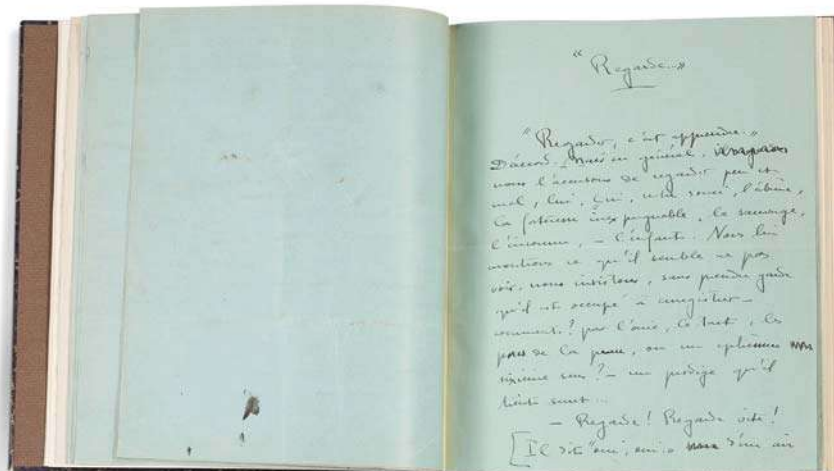 « Regarde... »
"Regarder, c'est apprendre."
D'accord. Mais en général,
nous l'accusons de regarder peu et
mal, lui, lui, notre souci, l'abîme,
la forteresse inexpugnable, le sauvage,
l'inconnu, – l'enfant. Nous lui
montrons ce qu'il semble ne pas
voir, nous insistons, sans prendre garde
qu'il est occupé à enregistrer –
comment? par l'ouïe, le tact, les
pores de la peau, ou un
sixième sens? – un prodige qu'il
tient secret...
– Regarde! Regarde vite!
[Il dit "oui, oui" d'un air